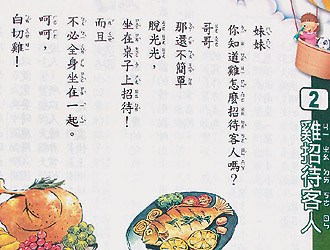 2
雞招待客人
妹妹
你知道雞怎麼招待客人嗎？
哥哥
那還不簡單
脫光光，
坐在桌子上招待！
而且
不必全身坐在一起。
呵呵，
白切雞！